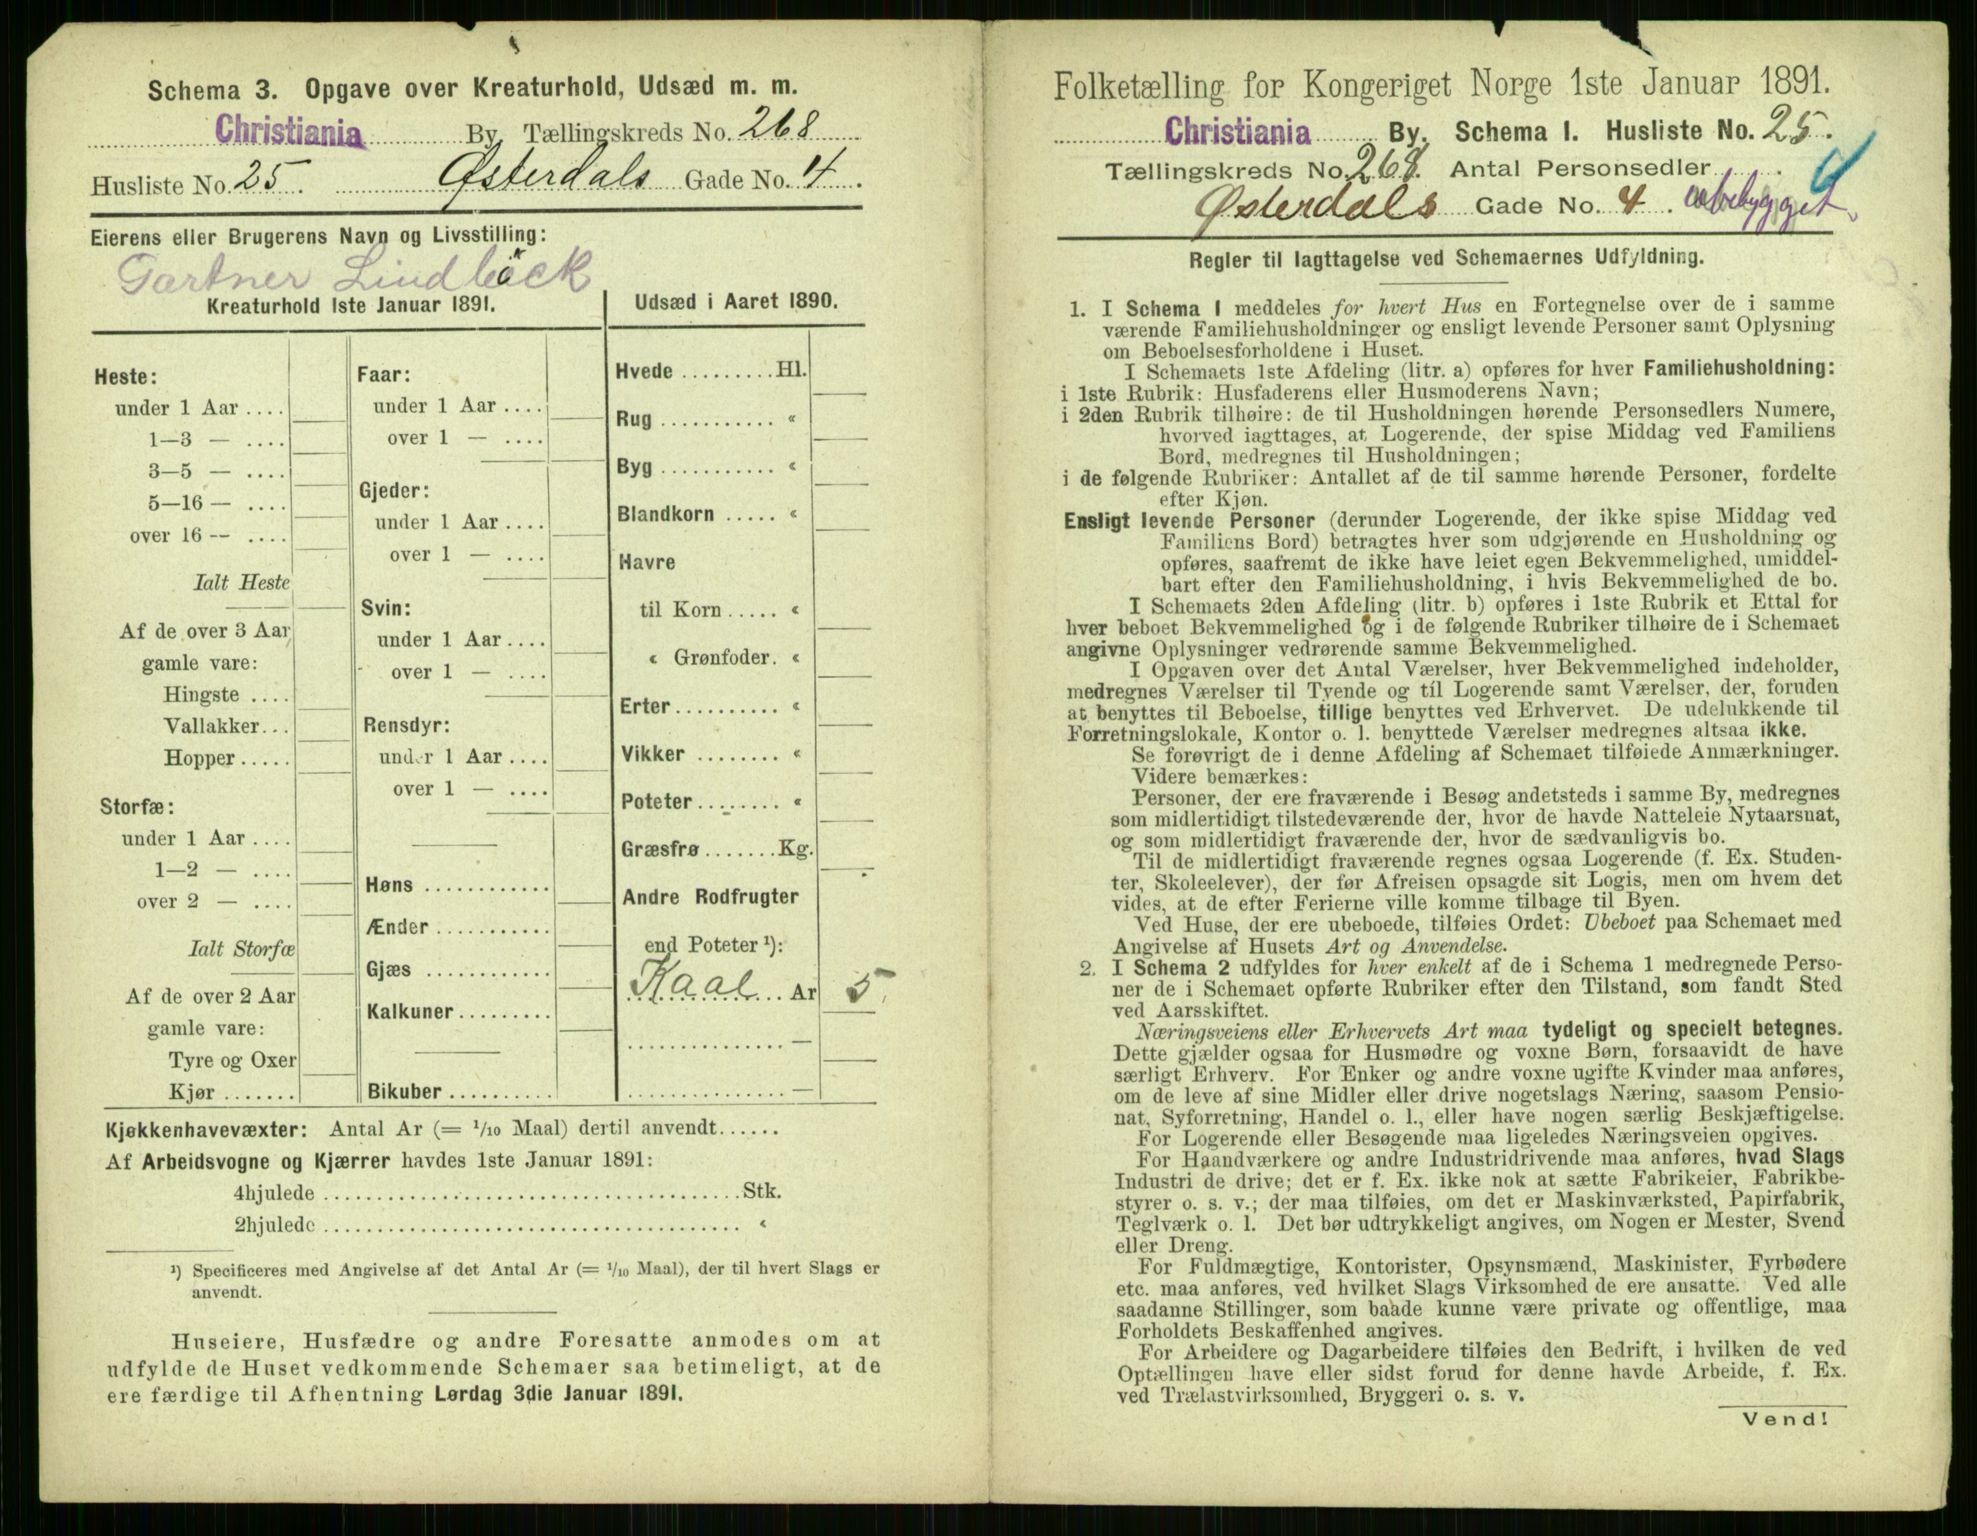 Schema 3. Opgave over Kreaturhold, Udsæd m. m.
Christiania By, Tællingskreds No. 268
Husliste No. 25. Østerdals Gade No. 4.
Eierens eller Brugerens Navn og Livsstilling:
Gartner Lindbäck
Kreaturhold 1ste Januar 1891.
Heste:
under 1 Aar ....
1—3 — ....
3—5 — ....
5—16 — ....
over 16 — ....
Ialt Heste
Af de over 3 Aar
gamle vare:
Hingste ....
Vallakker...
Hopper.....
Storfæ:
under 1 Aar ....
1—2 — ....
over 2 — ....
Ialt Storfæ
Af de over 2 Aar
gamle vare:
Tyre og Oxer
Kjør .......
Faar:
under 1 Aar ....
over 1 — ....
Gjeder:
under 1 Aar ....
over 1 — ....
Svin:
under 1 Aar ....
over 1 — ....
Rensdyr:
under 1 Aar ....
over 1 — ....
Høns ............
Ænder ...........
Gjæs ............
Kalkuner.........
Bikuber ..........
Udsæd i Aaret 1890.
Hvede .........Hl.
Rug ........... «
Byg ........... «
Blandkorn ..... «
Havre
til Korn ..... «
« Grønfoder. «
Erter.......... «
Vikker ........ «
Poteter ........ «
Græsfrø .......Kg.
Andre Rodfrugter
end Poteter ¹):
Kaal Ar 5.
............... —
............... —
Kjøkkenhavevæxter: Antal Ar (= 1/10 Maal) dertil anvendt......
Af Arbeidsvogne og Kjærrer havdes 1ste Januar 1891:
4hjulede ........................................Stk.
2hjulede ........................................ «
¹) Specificeres med Angivelse af det Antal Ar (= 1/10 Maal), der til hvert Slags er
anvendt.
Huseiere, Husfædre og andre Foresatte anmodes om at
udfylde de Huset vedkommende Schemaer saa betimeligt, at de
ere færdige til Afhentning Lørdag 3die Januar 1891.
Folketælling for Kongeriget Norge 1ste Januar 1891.
Christiania By, Schema 1. Husliste No. 25.
Tællingskreds No. 268. Antal Personsedler
Østerdals Gade No. 4. ubebygget
Regler til Iagttagelse ved Schemaernes Udfyldning.
1. I Schema 1 meddeles for hvert Hus en Fortegnelse over de i samme
værende Familiehusholdninger og ensligt levende Personer samt Oplysning
om Beboelsesforholdene i Huset.
I Schemaets 1ste Afdeling (litr. a) opføres for hver Familiehusholdning:
i 1ste Rubrik: Husfaderens eller Husmoderens Navn;
i 2den Rubrik tilhøire: de til Husholdningen hørende Personsedlers Numere,
hvorved iagttages, at Logerende, der spise Middag ved Familiens
Bord, medregnes til Husholdningen;
i de følgende Rubriker: Antallet af de til samme hørende Personer, fordelte
efter Kjøn.
Ensligt levende Personer (derunder Logerende, der ikke spise Middag ved
Familiens Bord) betragtes hver som udgjørende en Husholdning og
opføres, saafremt de ikke have leiet egen Bekvemmelighed, umiddel-
bart efter den Familiehusholdning, i hvis Bekvemmelighed de bo.
I Schemaets 2den Afdeling (litr. b) opføres i 1ste Rubrik et Ettal for
hver beboet Bekvemmelighed og i de følgende Rubriker tilhøire de i Schemaet
angivne Oplysninger vedrørende samme Bekvemmelighed.
I Opgaven over det Antal Værelser, hver Bekvemmelighed indeholder,
medregnes Værelser til Tyende og til Logerende samt Værelser, der, foruden
at benyttes til Beboelse, tillige benyttes ved Erhvervet. De udelukkende til
Forretningslokale, Kontor o. l. benyttede Værelser medregnes altsaa ikke.
Se forøvrigt de i denne Afdeling af Schemaet tilføiede Anmærkninger.
Videre bemærkes:
Personer, der ere fraværende i Besøg andetsteds i samme By, medregnes
som midlertidigt tilstedeværende der, hvor de havde Natteleie Nytaarsnat,
og som midlertidigt fraværende der, hvor de sædvanligvis bo.
Til de midlertidigt fraværende regnes ogsaa Logerende (f. Ex. Studen-
ter, Skoleelever), der før Afreisen opsagde sit Logis, men om hvem det
vides, at de efter Ferierne ville komme tilbage til Byen.
Ved Huse, der ere ubeboede, tilføies Ordet: Ubeboet paa Schemaet med
Angivelse af Husets Art og Anvendelse.
2. I Schema 2 udfyldes for hver enkelt af de i Schema 1 medregnede Perso-
ner de i Schemaet opførte Rubriker efter den Tilstand, som fandt Sted
ved Aarsskiftet.
Næringsveiens eller Erhvervets Art maa tydeligt og specielt betegnes.
Dette gjælder ogsaa for Husmødre og voxne Børn, forsaavidt de have
særligt Erhverv. For Enker og andre voxne ugifte Kvinder maa anføres,
om de leve af sine Midler eller drive nogetslags Næring, saasom Pensio-
nat, Syforretning, Handel o. l., eller have nogen særlig Beskjæftigelse.
For Logerende eller Besøgende maa ligeledes Næringsveien opgives.
For Haandværkere og andre Industridrivende maa anføres, hvad Slags
Industri de drive; det er f. Ex. ikke nok at sætte Fabrikeier, Fabrikbe-
styrer o. s. v.; der maa tilføies, om det er Maskinværksted, Papirfabrik,
Teglværk o. l. Det bør udtrykkeligt angives, om Nogen er Mester, Svend
eller Dreng.
For Fuldmægtige, Kontorister, Opsynsmænd, Maskinister, Fyrbødere
etc. maa anføres, ved hvilket Slags Virksomhed de ere ansatte. Ved alle
saadanne Stillinger, som baade kunne være private og offentlige, maa
Forholdets Beskaffenhed angives.
For Arbeidere og Dagarbeidere tilføies den Bedrift, i hvilken de ved
Optællingen have eller sidst forud for denne havde Arbeide, f. Ex.
ved Trælastvirksomhed, Bryggeri o. s. v.
Vend!